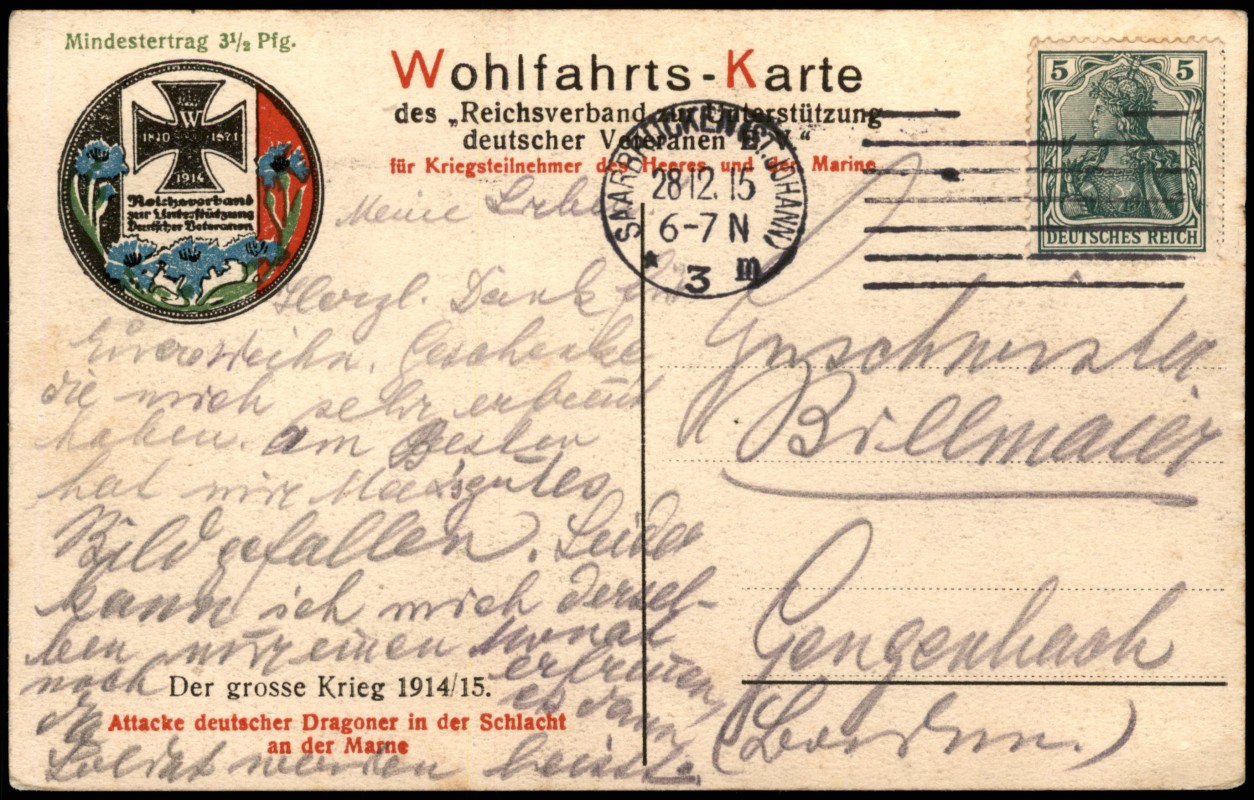 Mindestertrag 3 1/2 Pfg.
W
1870 1871
1914
Reichsverband
zur Unterstützung
Deutscher Veteranen
Wohlfahrts-Karte
des „Reichsverband zur Unterstützung
deutscher Veteranen E.V."
für Kriegsteilnehmer des Heeres und der Marine
5 5
DEUTSCHES REICH
SAARBRÜCKEN (ST. JOHANN)
28.12.15
6-7 N
* 3 m
Meine Lieben.
Herzl. Dank für
Eure Weihn. Geschenke
die mich sehr erfreut
haben. Am Besten
hat mir gutes
Bild gefallen. Leider
kann ich mich dersel-
ben nur einen Monat
noch erfreuen,
da es dann
Soldat werden heisst.
Der grosse Krieg 1914/15.
Attacke deutscher Dragoner in der Schlacht
an der Marne
Geschwister
Billmaier
Gengenbach
(Baden.)